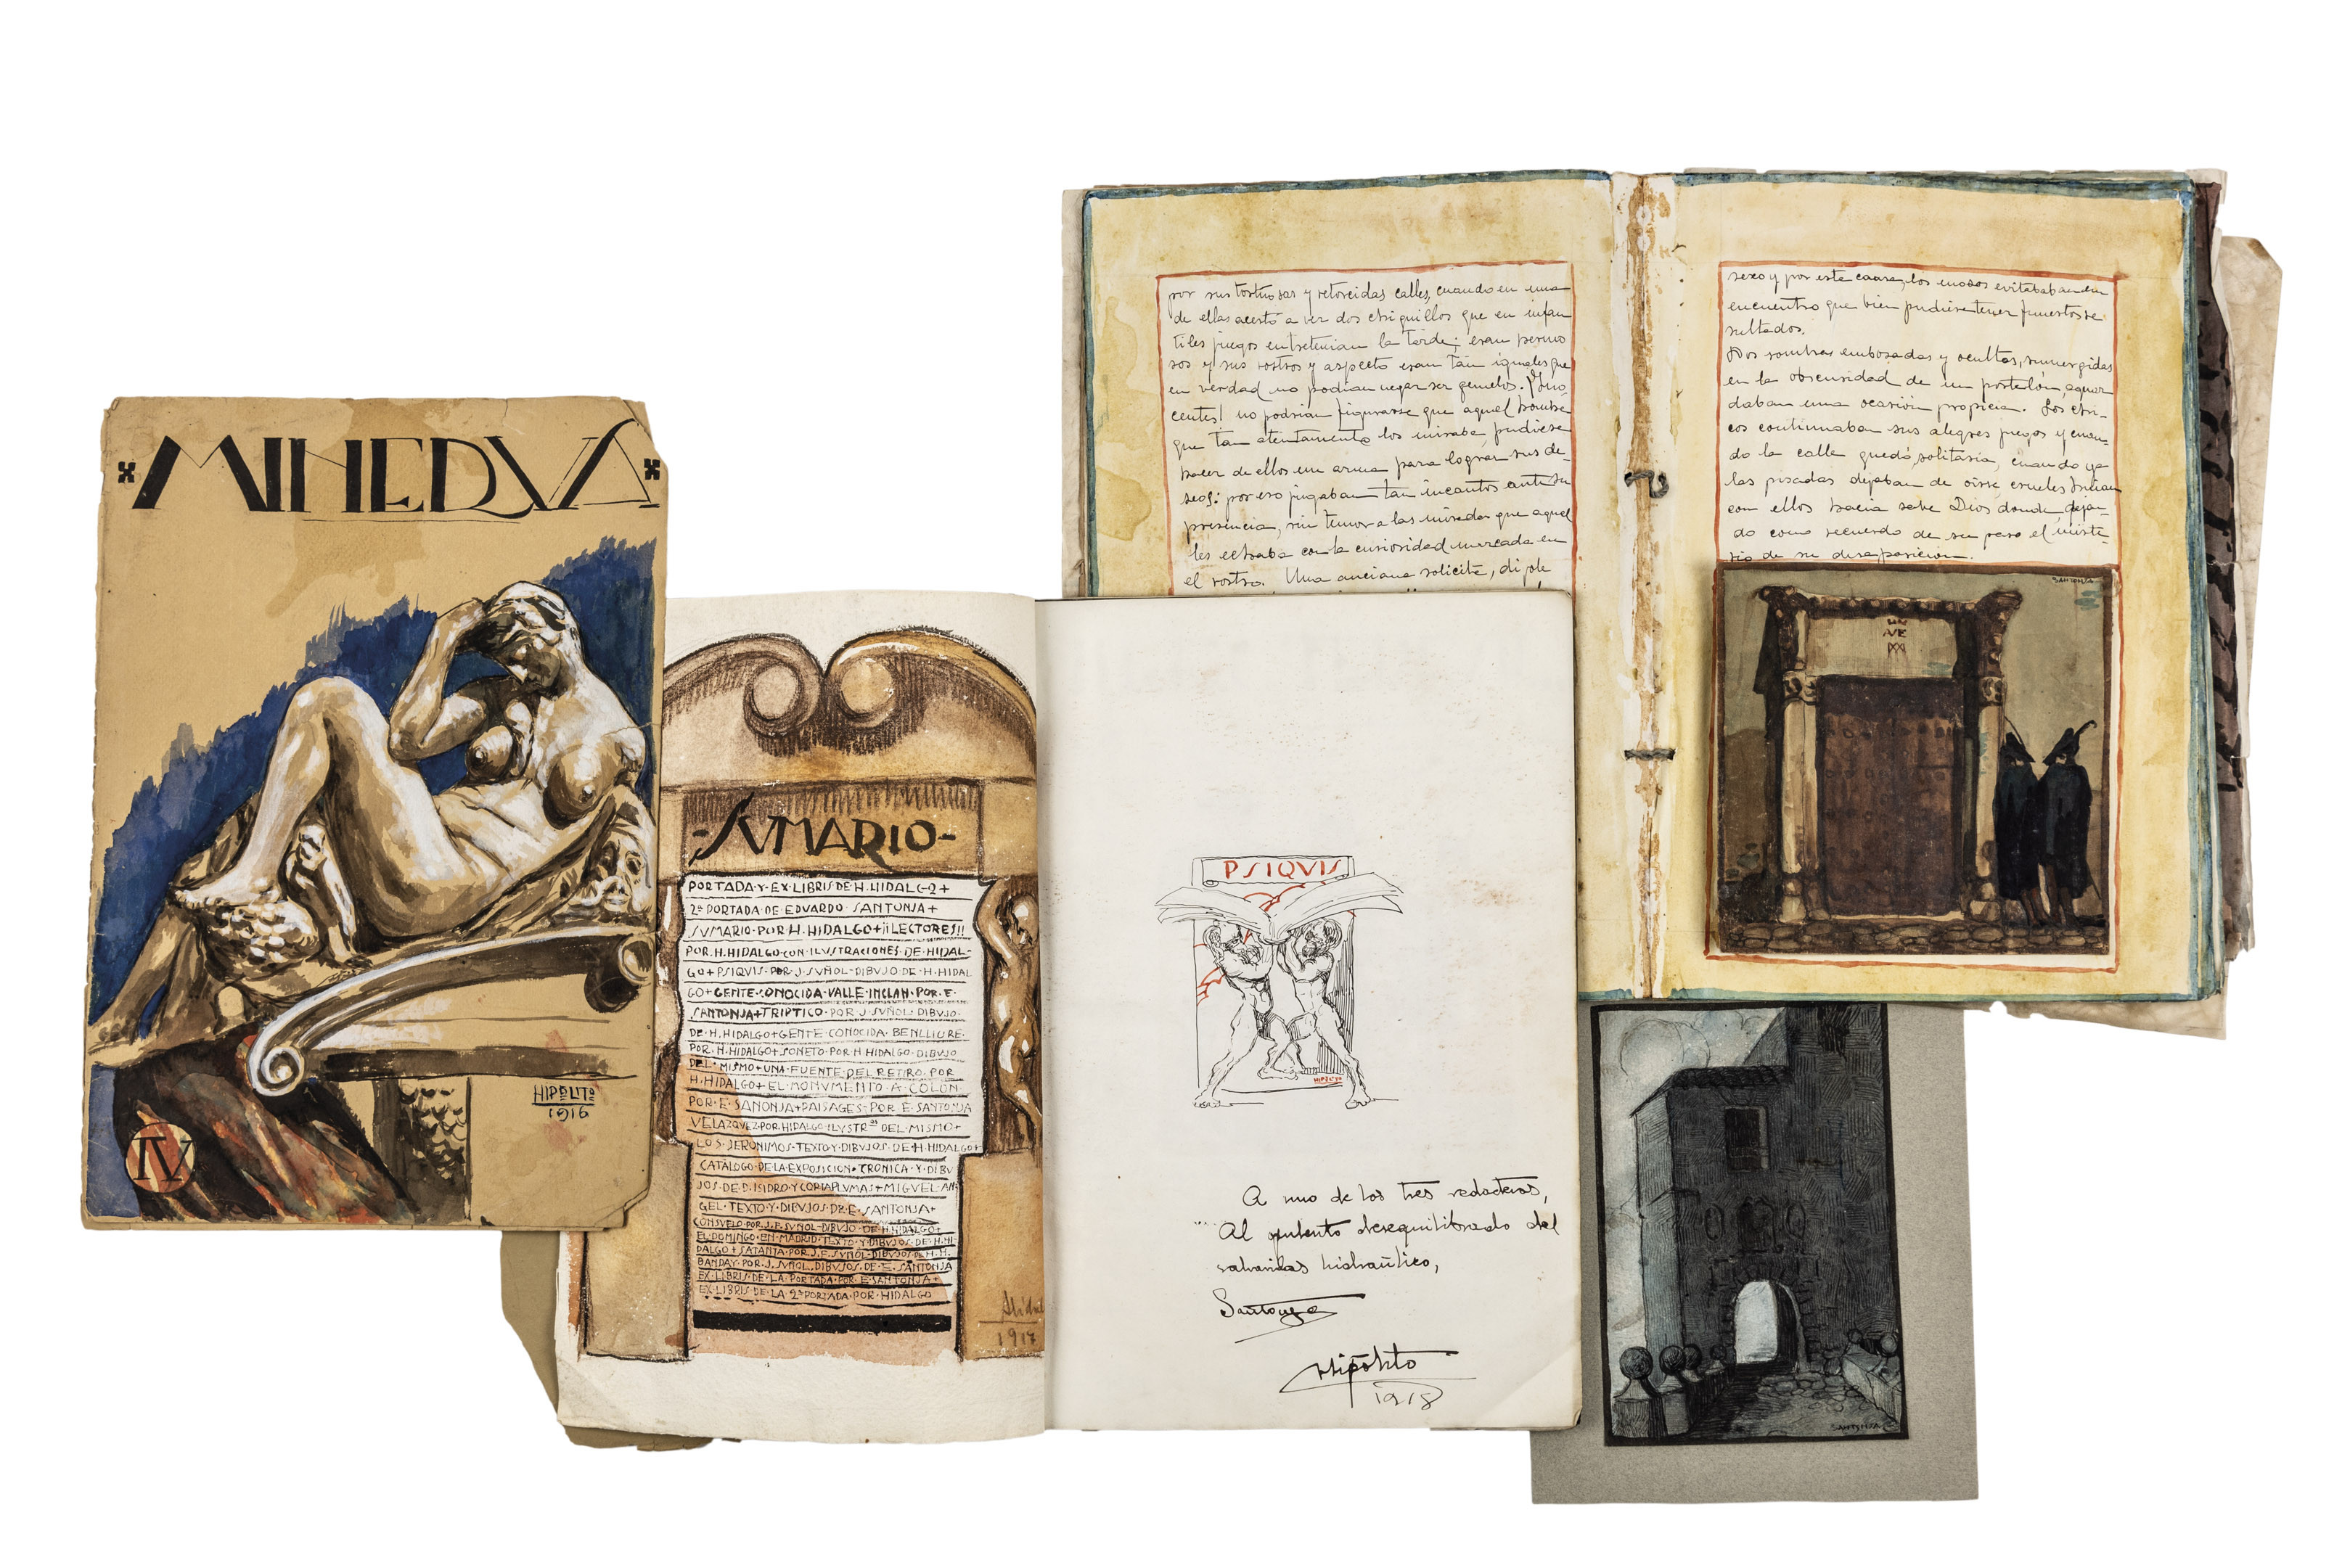 MINERVA
HIPOLITO
1916
IV
-SVMARIO-
PORTADA·Y·EX·LIBRIS·DE·H·HIDALGO+
2ª PORTADA DE EDVARDO SANTONJA+
SVMARIO·POR·H·HIDALGO+¡¡LECTORES!!
POR·H·HIDALGO·CON·ILVSTRACIONES·DE·HIDAL-
GO+PSIQVIS·POR·J·SVÑOL-DIBVJO·DE·H·HIDAL
GO+GENTE·CONOCIDA·VALLE·INCLAN·POR·E·
SANTONJA+TRIPTICO·POR·J·SVÑOL·DIBVJO·
DE·H·HIDALGO+GENTE·CONOCIDA·BENLLIVRE·
POR·H·HIDALGO+SONETO·POR·H·HIDALGO·DIBVJO
DEL·MISMO+VNA·FVENTE·DEL·RETIRO·POR
H·HIDALGO+EL·MONVMENTO·A·COLON·
POR·E·SANONJA+PAISAGES·POR·E·SANTONJA
VELAZQVEZ·POR·HIDALGO·ILVSTRᵒˢ DEL·MISMO+
LOS·JERONIMOS·TEXTO·Y·DIBVJOS·DE·H·HIDALGO+
CATALOGO·DE·LA·EXPOSICION·CRONICA·Y·DIBV
JOS·DE·D·ISIDRO·Y·CORTAPLVMAS+MIGVEL·AN-
GEL·TEXTO·Y·DIBVJOS·DE·E·SANTONJA+
CONSVELO·POR·J·F·SVÑOL·DIBVJO·DE·H·HIDALGO+
EL·DOMINGO·EN·MADRID·TEXTO·Y·DIBVJOS·DE·H·HI-
DALGO+SATANTA·POR·J·F·SVÑOL·DIBVJOS·DE·H·H.
BANDAY·POR·J·SVÑOL·DIBVJOS·DE·E·SANTONJA
EX·LIBRIS·DE·LA·PORTADA·POR·E·SANTONJA+
EX·LIBRIS·DE·LA·2ª·PORTADA·POR·HIDALGO
1917
PSIQVIS
HIPOLITO
A uno de los tres redactores,
Al opulento desequilibrado del
hidraúlico,
Santonja
Hipólito
1918
por sus tortuosas y retorcidas calles, cuando en una
de ellas acertó a ver dos chiquillos que en infan
tiles juegos entretenian la tarde; eran hermo
sos y sus rostros y aspecto eran tan iguales que
en verdad no podian negar ser gemelos. ¡Ino
centes! no podrian figurarse que aquel hombre
que tan atentamente los miraba, pudiese
hacer de ellos un arma para lograr sus de-
seos: por eso jugaban tan incautos ante su
presencia, sin temor a las miradas que aquel
les echaba con la curiosidad marcada en
el rostro. Una anciana solicita, dijole
sexo y por esta causa, los mozos evitababan un
encuentro que bien pudiese tener funestos re
sultados.
Dos sombras embozadas y ocultas, sumergidas
en la obscuridad de un portalón, aguar
daban una ocasión propicia. Los chi-
cos continuaban sus alegres juegos y cuan-
do la calle quedó solitaria, cuando ya
las pisadas dejaban de oirse crueles huian
con ellos hacia sabe Dios donde, dejan-
do como recuerdo de su paso el miste-
rio de su desaparición.
SANTONJA
AVE
SANTONJA